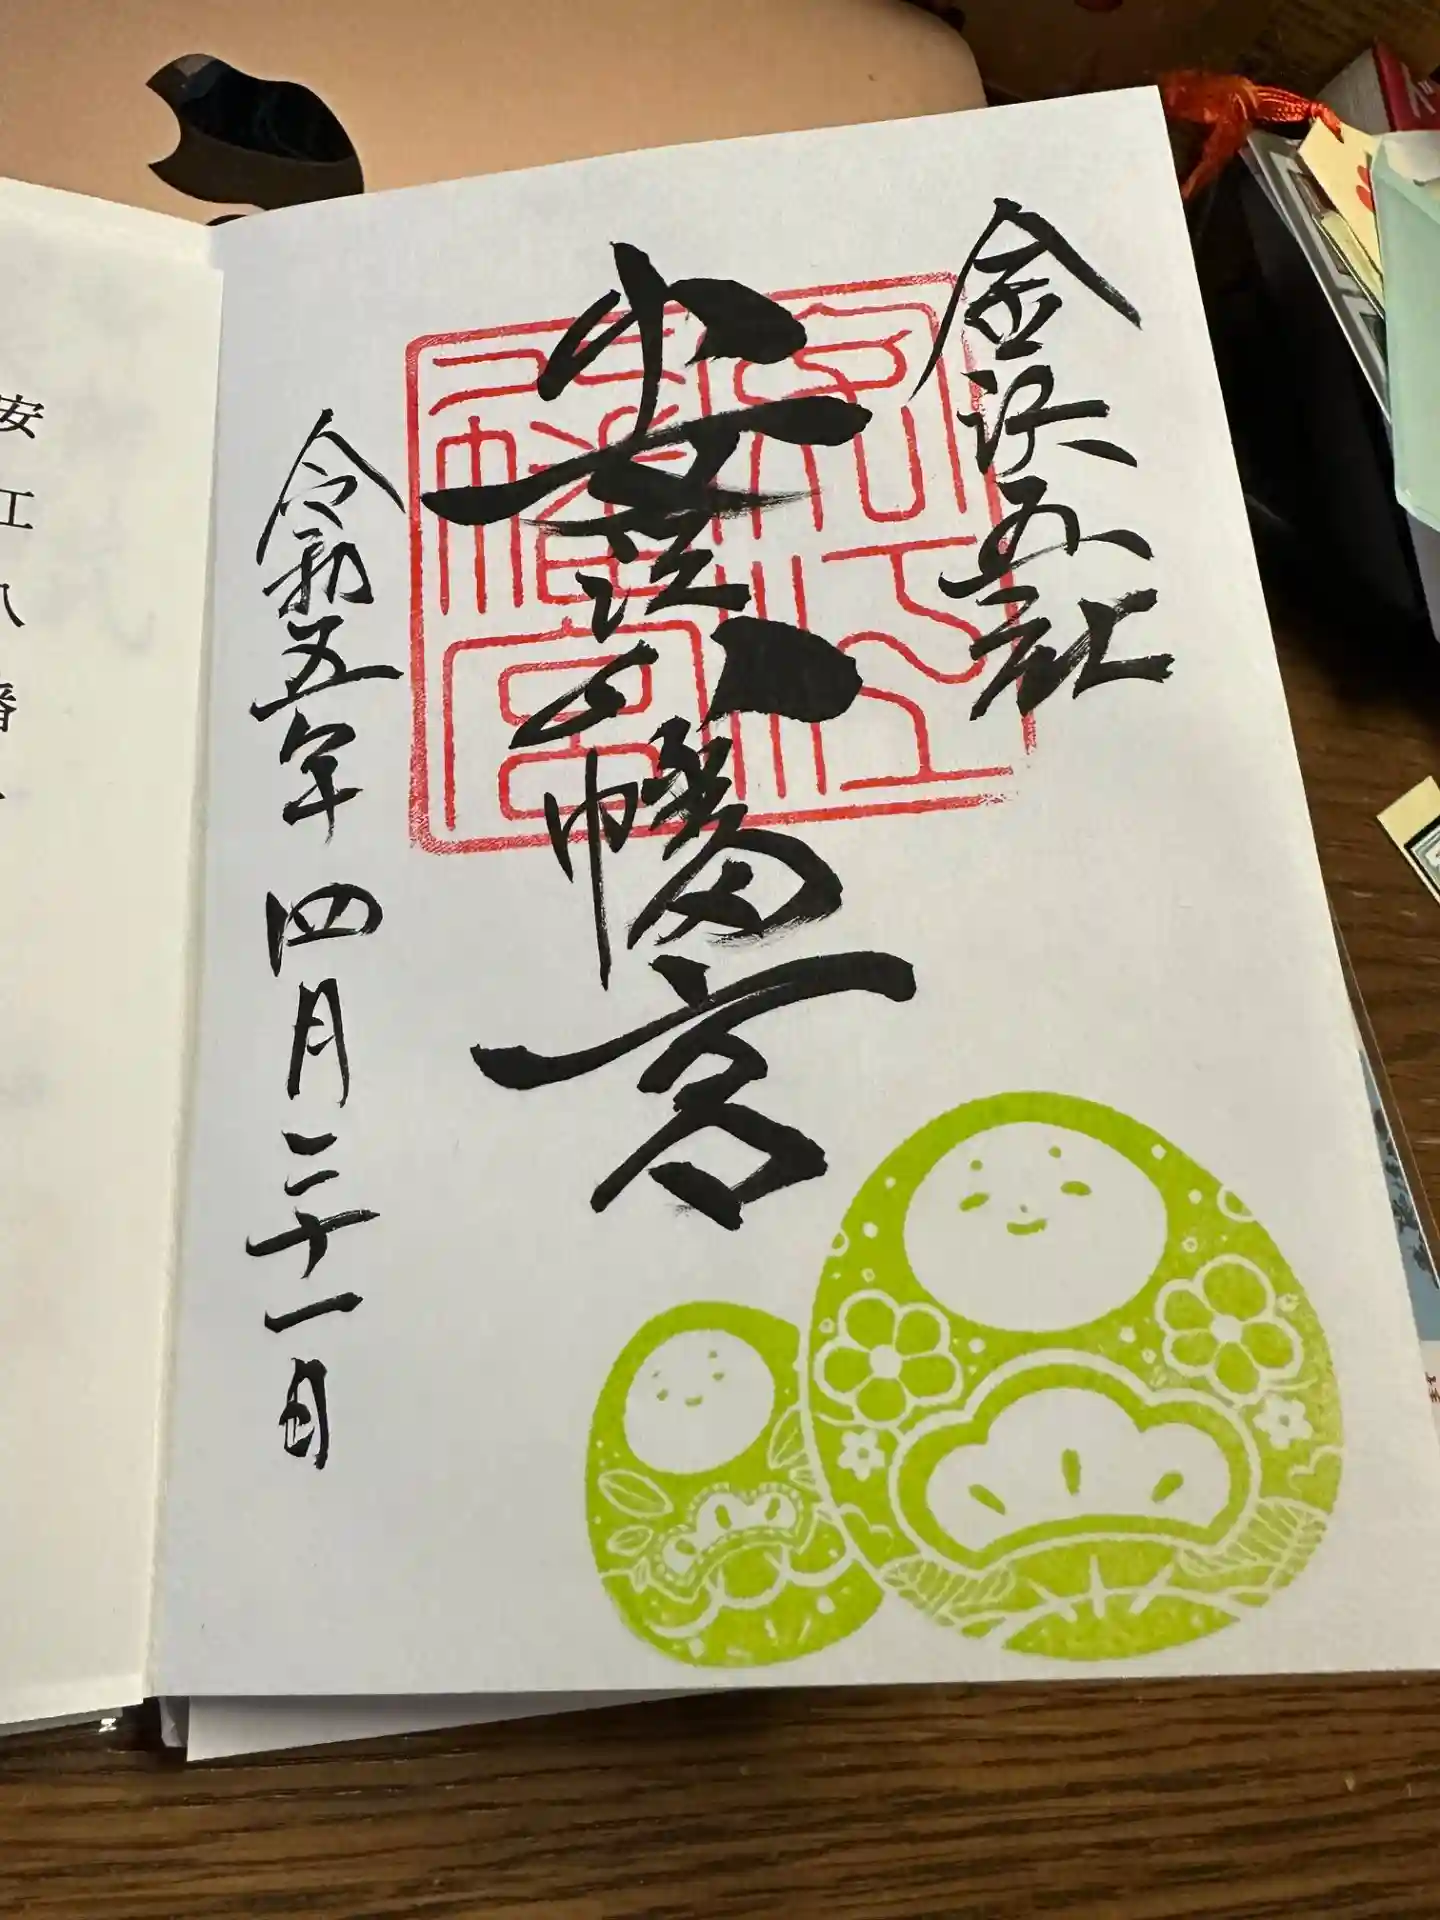 金沢五社
安江八幡宮
令和五年 四月二十一日
安江八幡